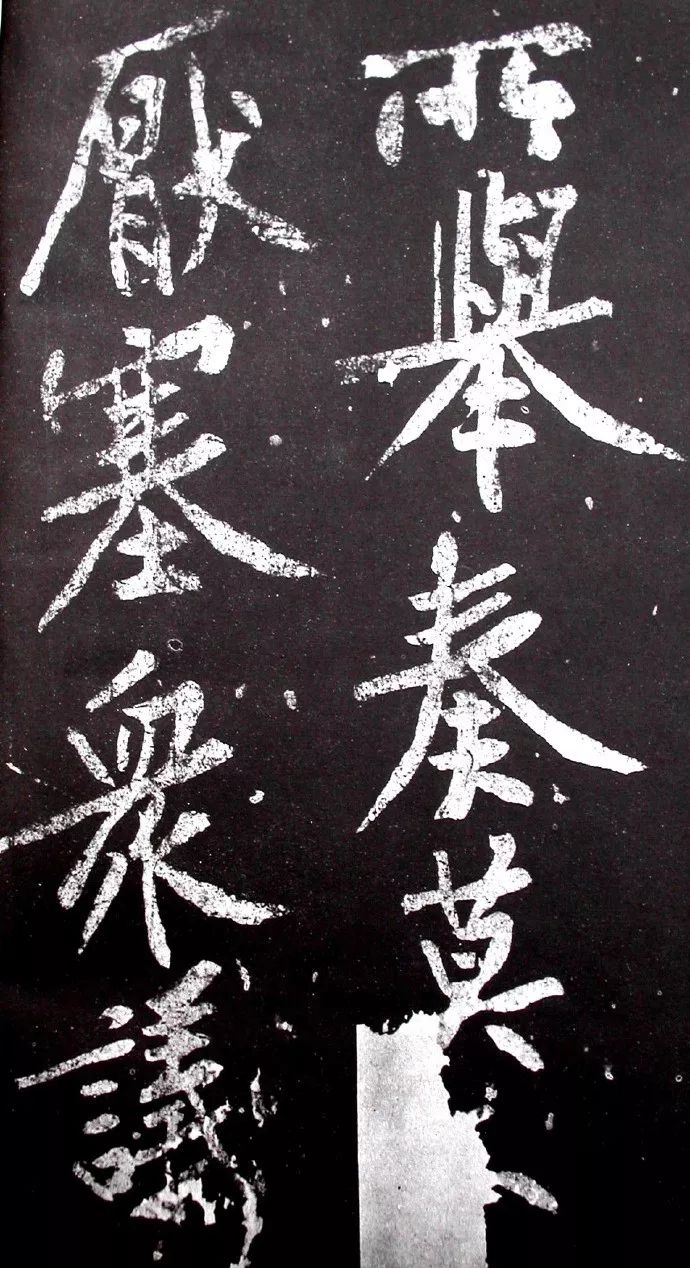 所舉奏莫
厭塞衆議